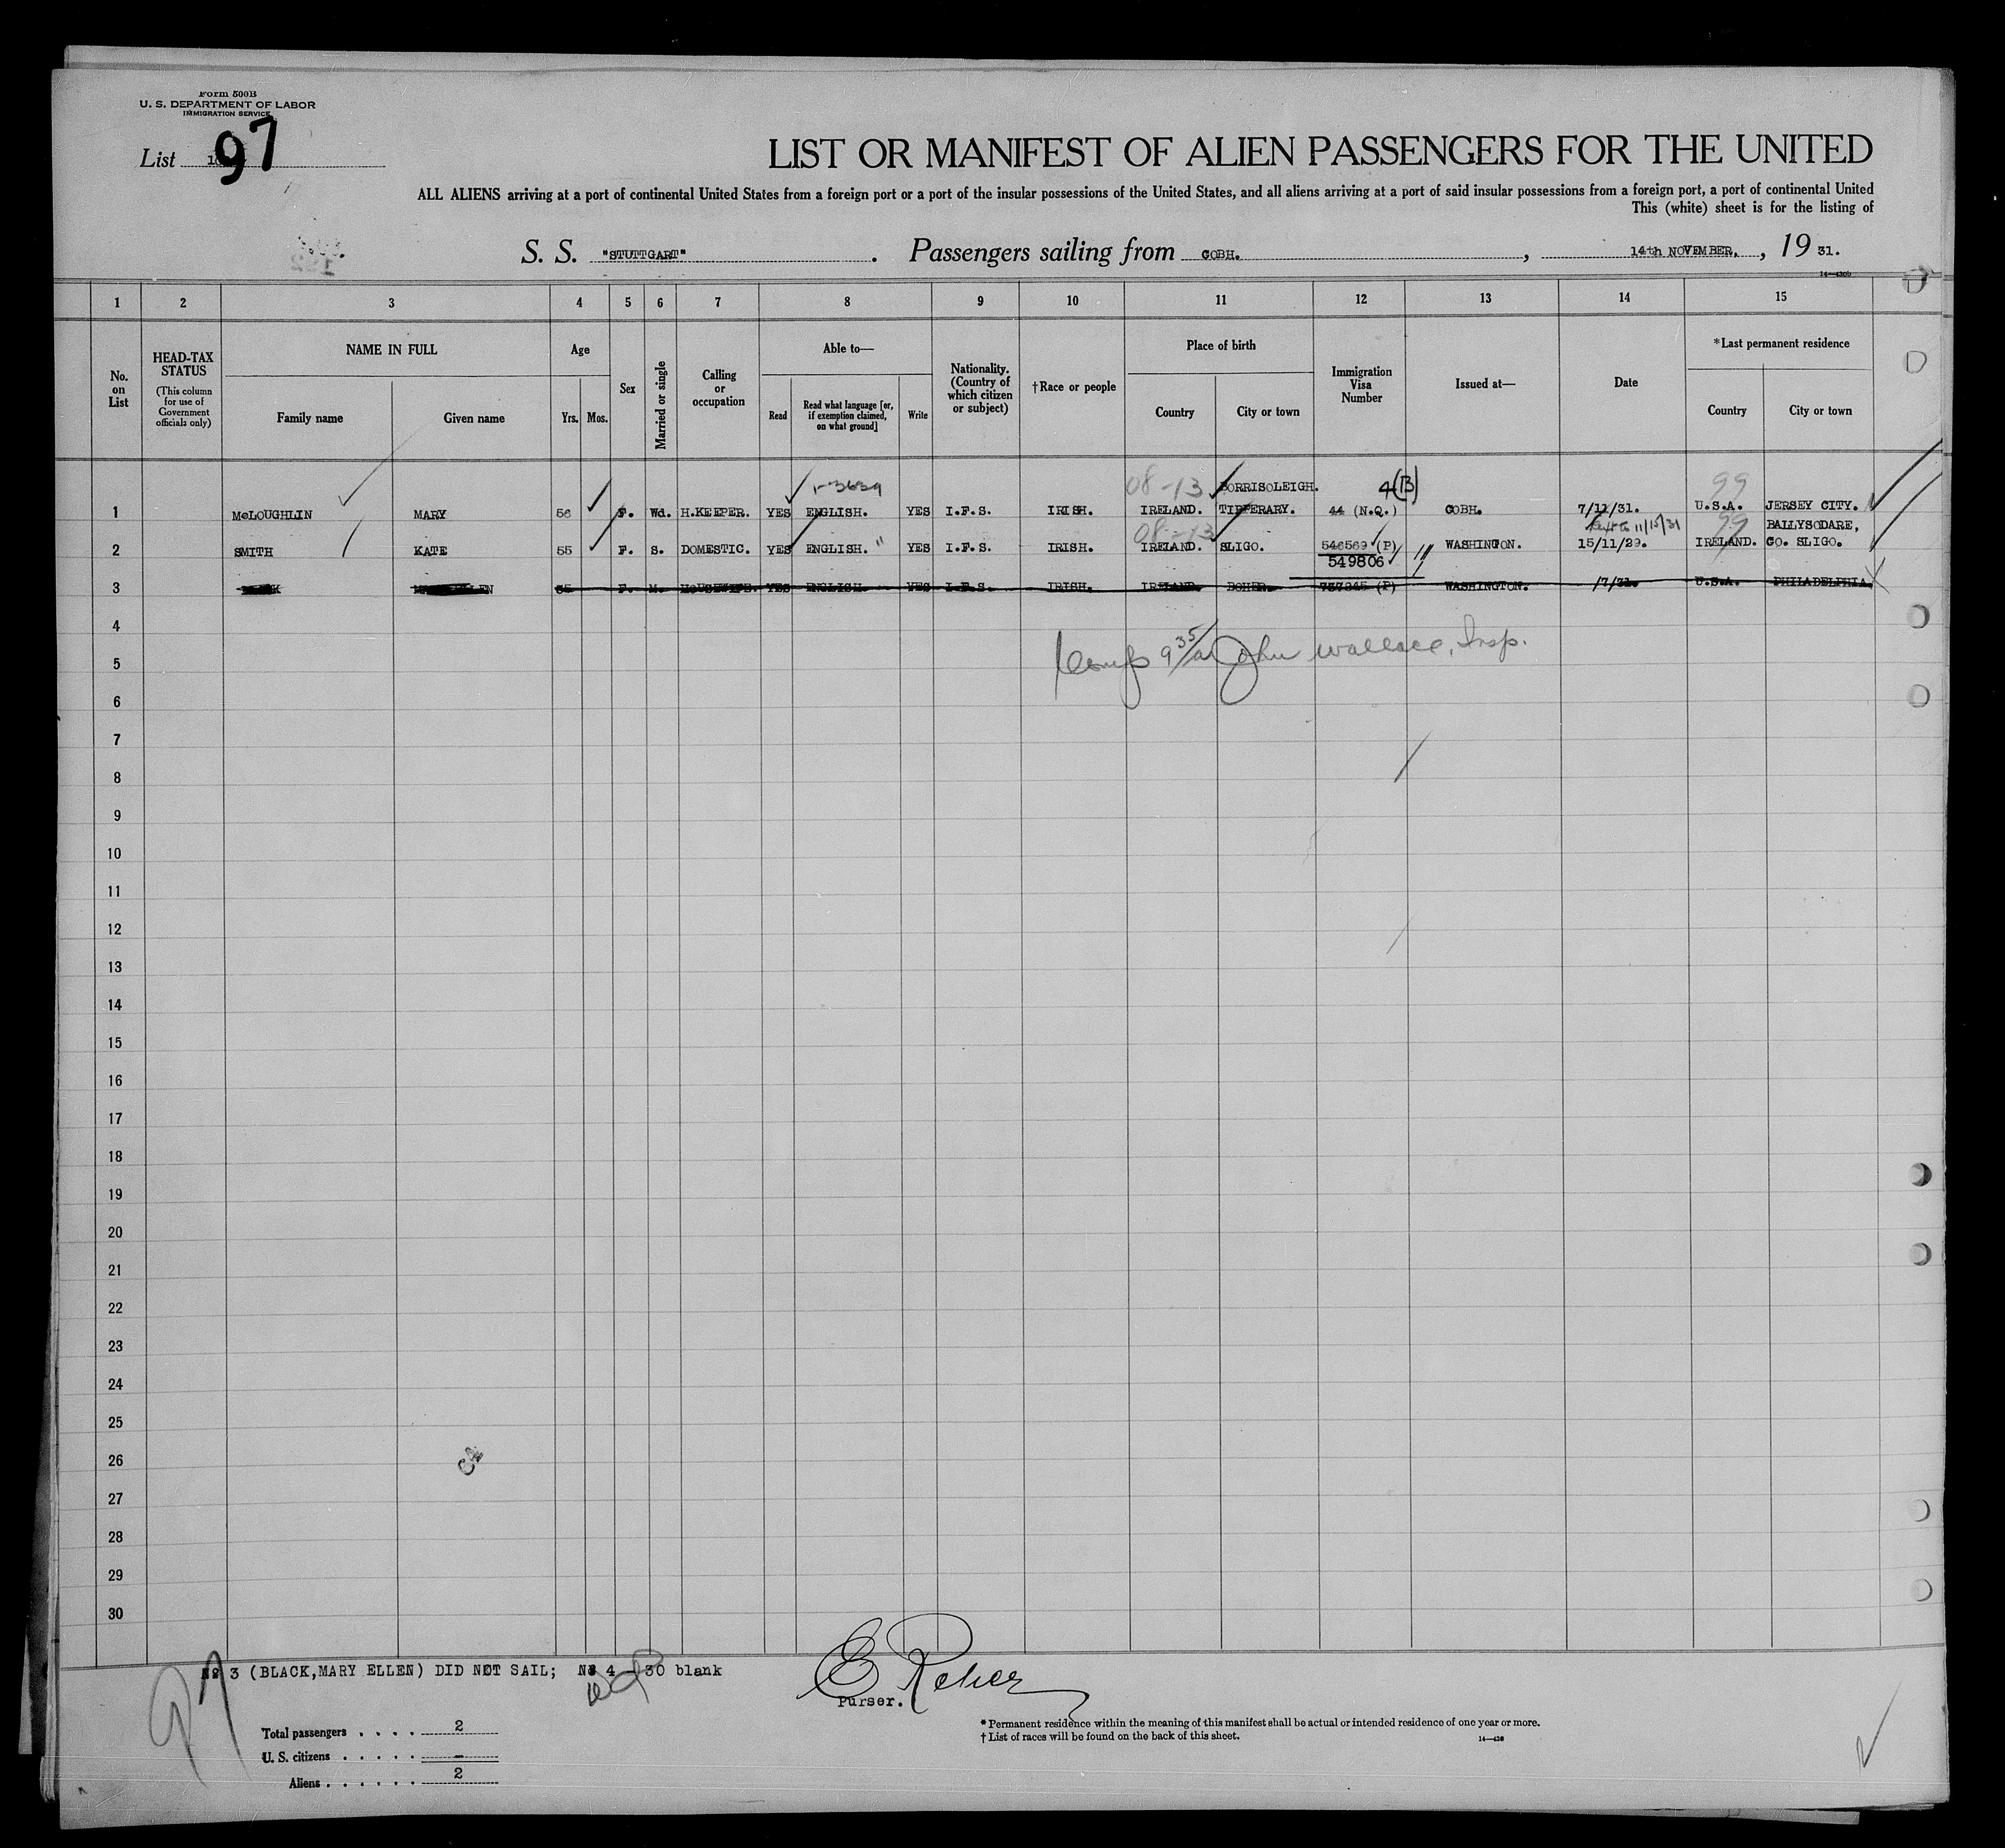 Form 500B
U. S. DEPARTMENT OF LABOR
IMMIGRATION SERVICE
List 97
LIST OR MANIFEST OF ALIEN PASSENGERS FOR THE UNITED
ALL ALIENS arriving at a port of continental United States from a foreign port or a port of the insular possessions of the United States, and all aliens arriving at a port of said insular possessions from a foreign port, a port of continental United
This (white) sheet is for the listing of
S. S. "STUTTGART". Passengers sailing from COBH. , 14th NOVEMBER. , 19 31.
14—430b
1 2 3 4 5 6 7 8 9 10 11 12 13 14 15
No. on List
HEAD-TAX STATUS
(This column for use of Government officials only)
NAME IN FULL
Family name Given name
Age
Yrs. Mos.
Sex
Married or single
Calling or occupation
Able to—
Read
Read what language [or, if exemption claimed, on what ground]
Write
Nationality. (Country of which citizen or subject)
†Race or people
Place of birth
Country City or town
Immigration Visa Number
Issued at—
Date
*Last permanent residence
Country City or town
08-13 BORRISOLEIGH. 4(13) 99
1 McLOUGHLIN MARY 56 F. Wd. H.KEEPER. YES ENGLISH. YES I.F.S. IRISH. IRELAND. TIPPERARY. 44 (N.Q.) COBH. 7/11/31. U.S.A. JERSEY CITY.
08-13 11/15/31 99 BALLYSODARE,
2 SMITH KATE 55 F. S. DOMESTIC. YES ENGLISH. " YES I.F.S. IRISH. IRELAND. SLIGO. 546569 (P) WASHINGTON. 15/11/29. IRELAND. CO. SLIGO.
549806
3 F. M. HOUSEWIFE. YES ENGLISH. YES I.F.S. IRISH. IRELAND. BOHER. (P) WASHINGTON. /7/31. U.S.A. PHILADELPHIA
4
9 35/a John Wallace, Insp.
5
6
7
8
9
10
11
12
13
14
15
16
17
18
19
20
21
22
23
24
25
26
27
28
29
30
No 3 (BLACK,MARY ELLEN) DID NOT SAIL; No 4 - 30 blank
Purser.
97
Total passengers . . . . 2
U. S. citizens . . . . . —
Aliens . . . . . . 2
* Permanent residence within the meaning of this manifest shall be actual or intended residence of one year or more.
† List of races will be found on the back of this sheet.
14—430